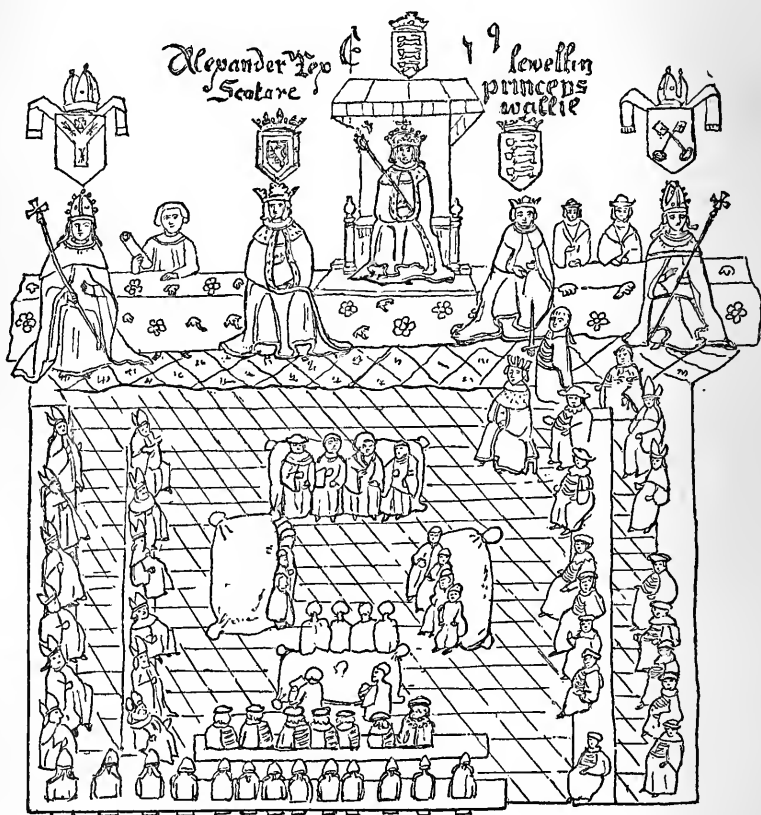 Alexander Rex
Scotare
E
lewellin
princeps
wallie